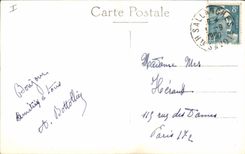 I
Carte Postale
SALLANCHES
Madame Mrs
Hérault
115 rue des Dames
Paris 17e
Bonjour
Amitiés à tous